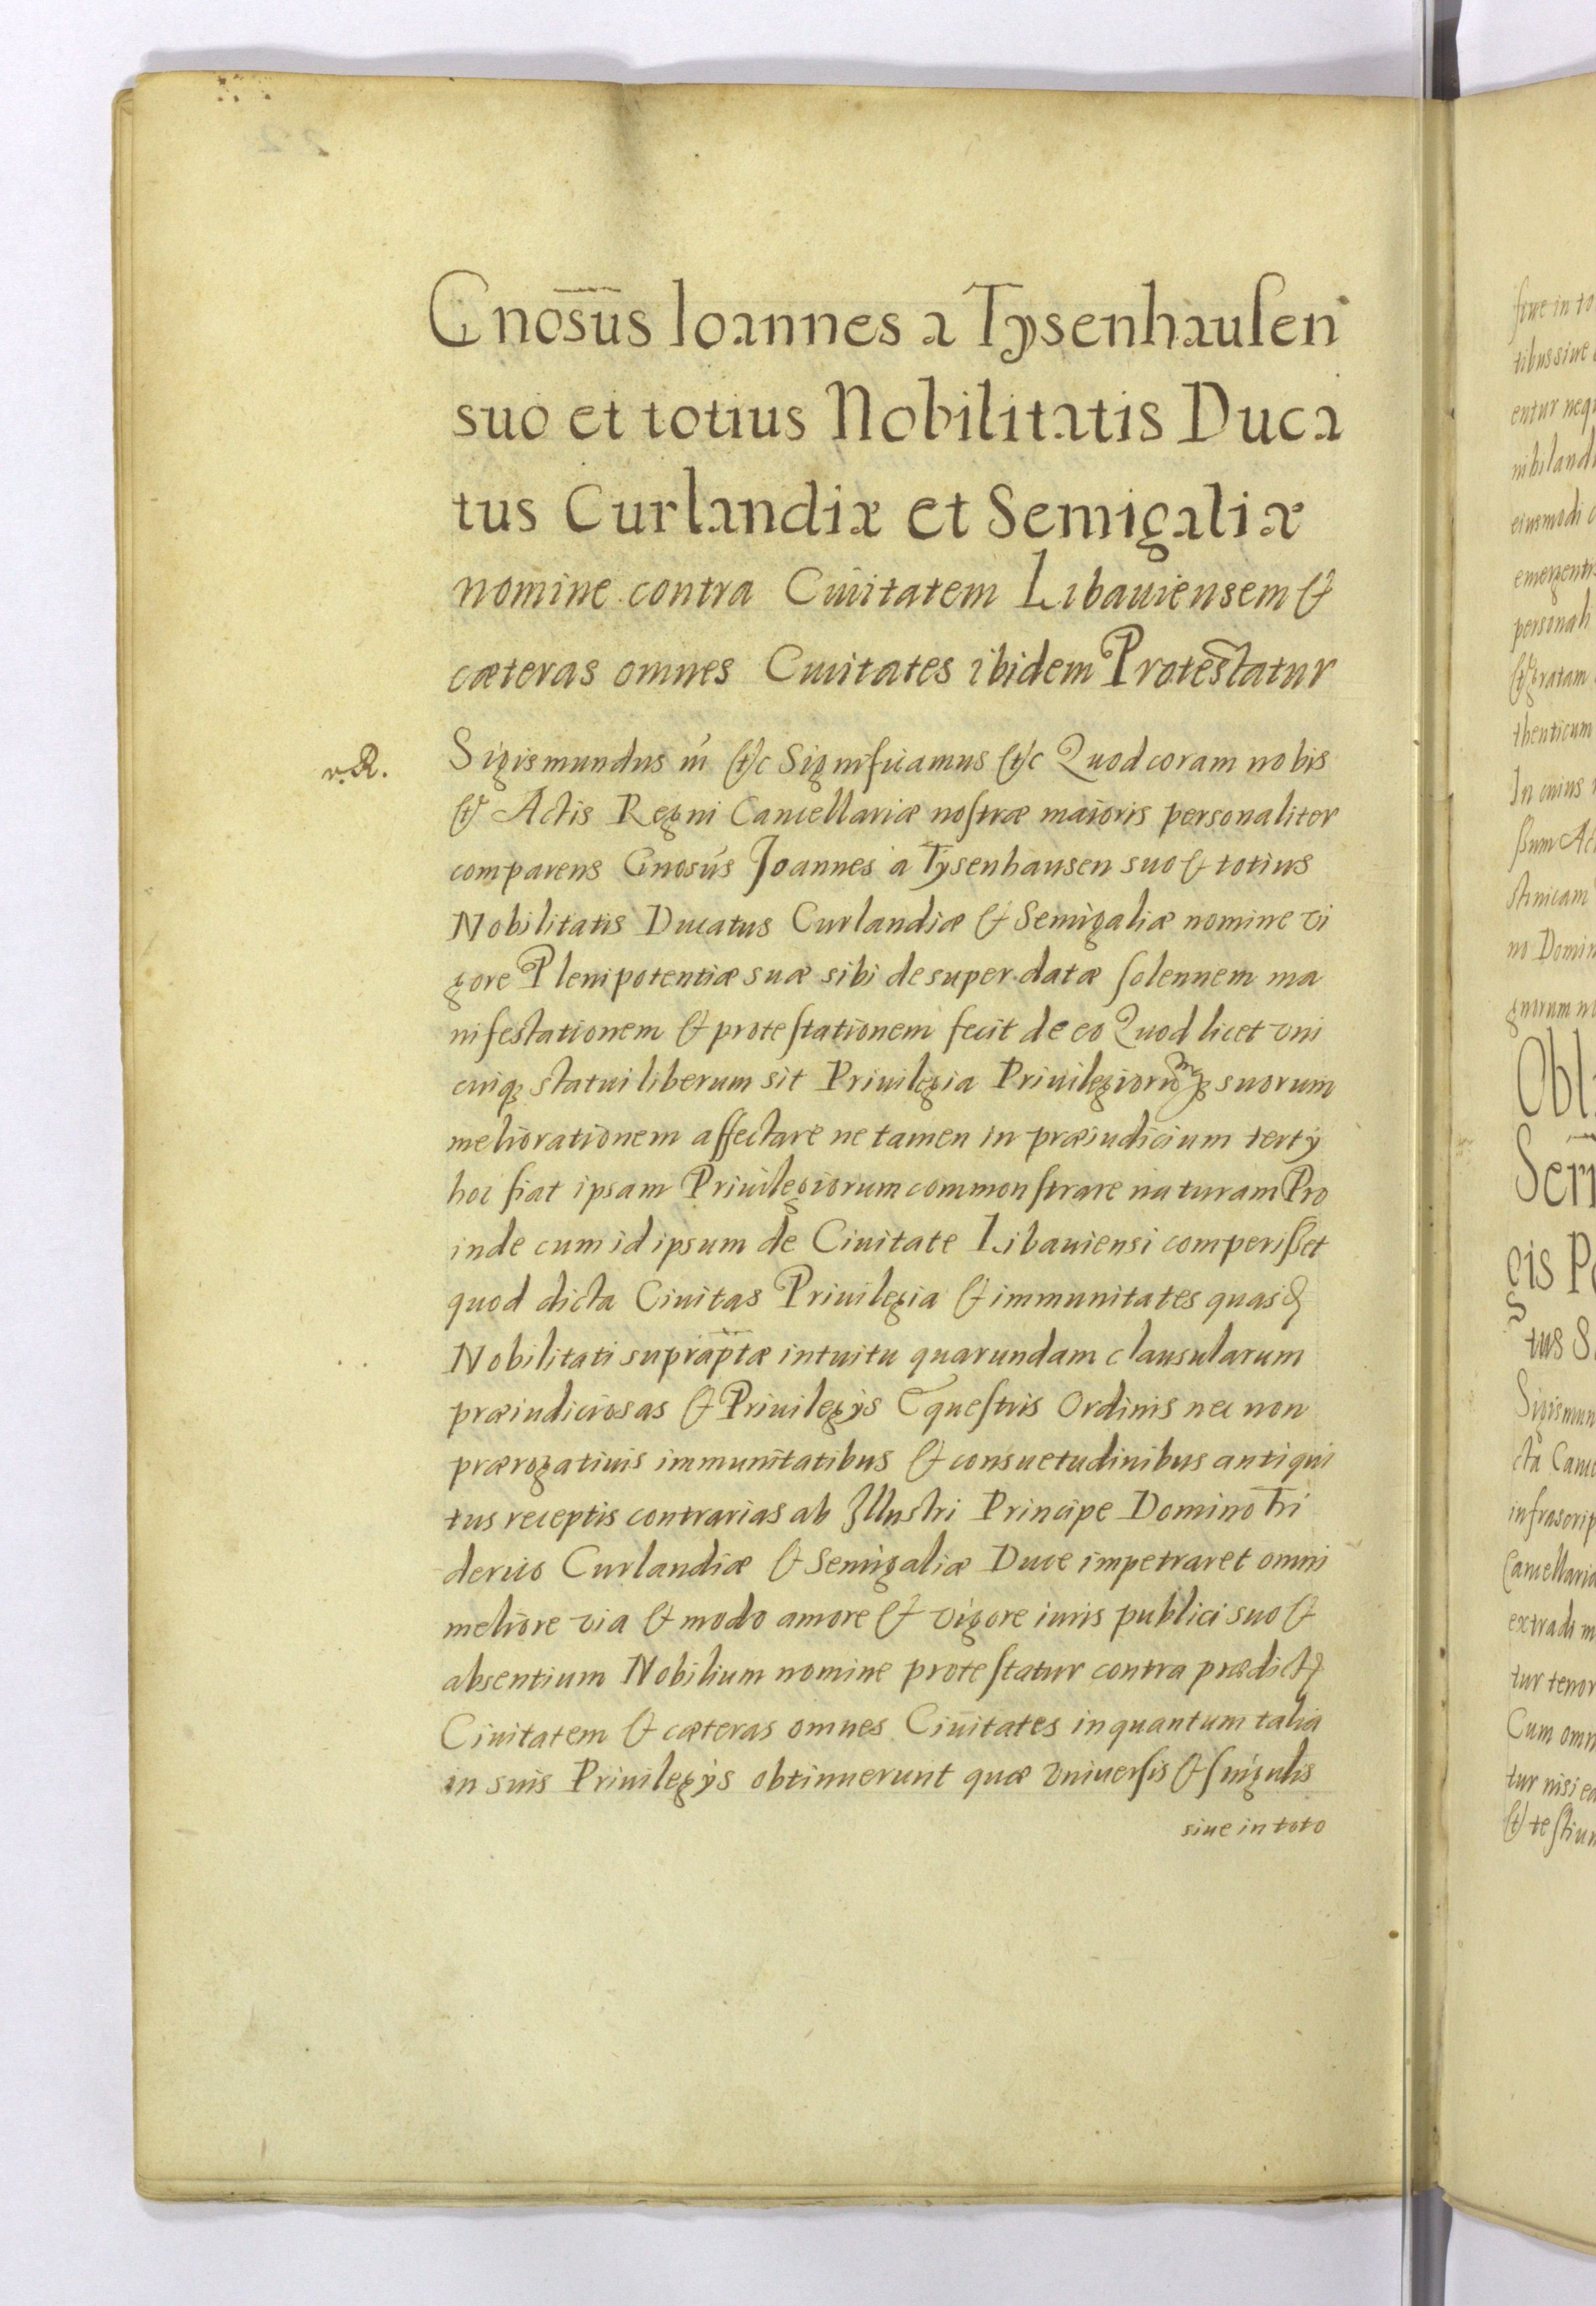 Gnosūs Ioannes a Tysenhausen
suo et totius Nobilitatis Duca
tus Curlandiæ et Semigaliæ
nomine contra Ciuitatem Libauiensem &
cæteras omnes Ciuitates ibidem Protestatur
Sigismundus iii &c Significamus &c Quod coram nobis
& Actis Regni Cancellariæ nostræ maioris personaliter
comparens Gnosūs Joannes a Tysenhausen suo & totius
Nobilitatis Ducatus Curlandiæ & Semigaliæ nomine vi
gore Plenipotentiæ suæ sibi desuper datæ solennem ma
nifestationem & protestationem fecit de eo Quod licet vni
cuiq statui liberum sit Priuilegia suorum
meliorationem affectare ne tamen in præiudicium tertij
hoc fiat ipsam Priuilegiorum commonstrare naturam Pro
inde cum id ipsum de Ciuitate Libauiensi comperisset
quod dicta Ciuitas Priuilegia & immunitates
Nobilitati suprāptæ intuitu quarundam clausularum
præiudiciosas & Priuilegijs Equestris Ordinis nec non
prærogatiuis immunitatibus & consuetudinibus antiqui
tus receptis contrarias ab Illustri Principe Domino Fri
derico Curlandiæ & Semigaliæ Duce impetraret omni
meliore via & modo amore & vigore iuris publici suo &
absentium Nobilium nomine protestatur contra
Ciuitatem & cæteras omnes Ciuitates inquantum talia
in suis Priuilegijs obtinuerunt quæ vniuersis & singulis
siue in toto
siue in to
tibus siue
entur neq
nihilandi
eiusmodi
emergenti
personali
& gratam
thenticum
In cuius
ssum Act
no Domin
gnorum
Obli
Seri
gis P
tus S
Sigismun
cta Canc
infrascrip
Cancellaria
extradi m
tur tenor
Cum omn
tur nisi ea
& testium